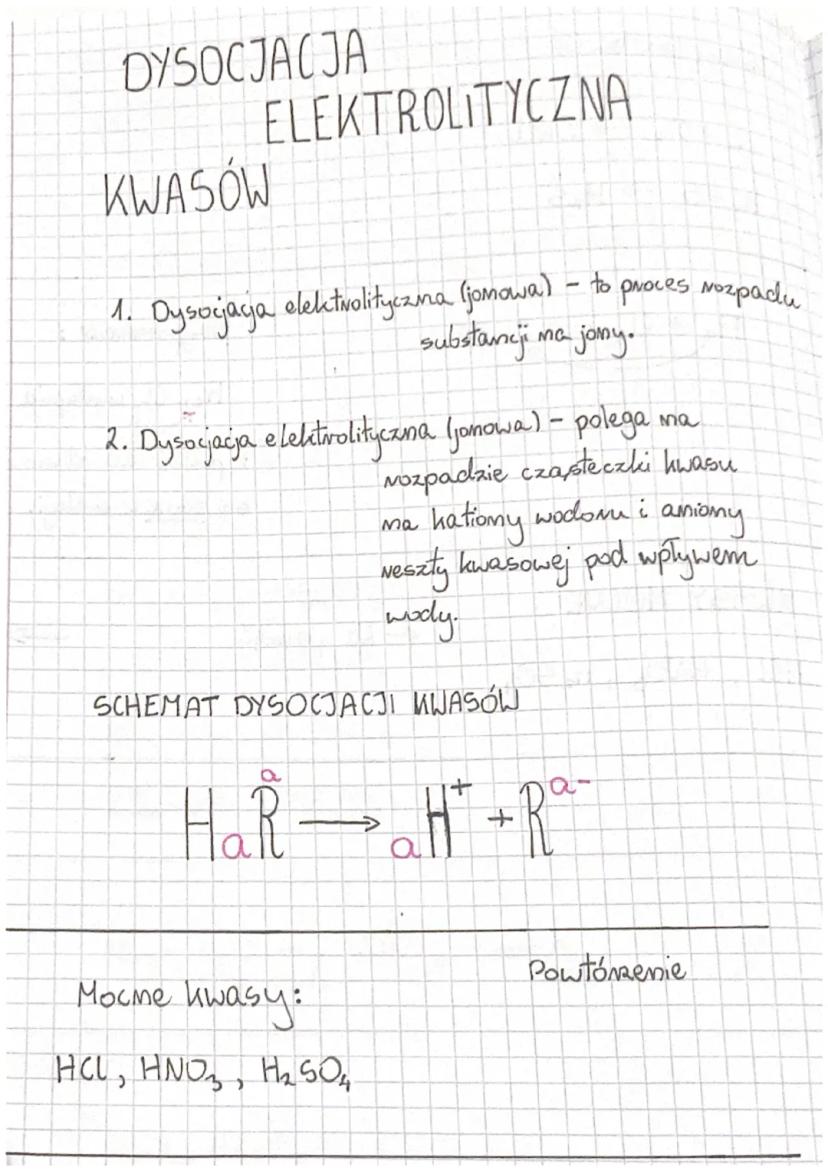 DYSOCJACJA
ELEKTROLITYCZNA
KWASÓW
1. Dysocjacja elektrolityczna (jonowa) - to proces rozpadu
substancji na jony.
2. Dysocjacja elektrolityczna (jonowa) - polega na
rozpadzie cząsteczki kwasu
na kationy wodoru i aniony
reszty kwasowej pod wpływem
wody.
SCHEMAT DYSOCJACJI KWASÓW
HₐRᵃ → aH⁺ + Rᵃ⁻
Powtórzenie
Mocne kwasy:
HCl, HNO₃, H₂SO₄